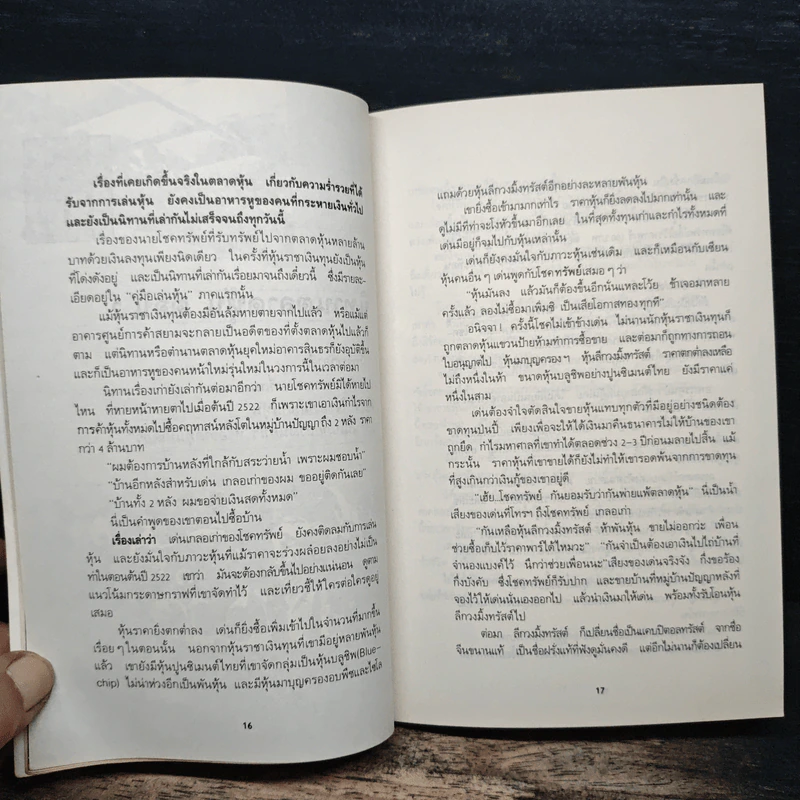 เรื่องที่เคยเกิดขึ้นจริงในตลาดหุ้น เกี่ยวกับความร่ำรวยที่ได้
รับจากการเล่นหุ้น ยังคงเป็นอาหารหูของคนที่กระหายเงินทั่วไป
และยังเป็นนิทานที่เล่ากันไม่เสร็จจนถึงทุกวันนี้
เรื่องของนายโชคทรัพย์ที่รับทรัพย์ไปจากตลาดหุ้นหลายล้าน
บาทด้วยเงินลงทุนเพียงนิดเดียว ในครั้งที่หุ้นราชาเงินทุนยังเป็นหุ้น
ที่โด่งดังอยู่ และเป็นนิทานที่เล่ากันเรื่อยมาจนถึงเดี๋ยวนี้ ซึ่งมีรายละ-
เอียดอยู่ใน "คู่มือเล่นหุ้น" ภาคแรกนั้น
แม้หุ้นราชาเงินทุนต้องมีอันล้มหายตายจากไปแล้ว หรือแม้แต่
อาคารศูนย์การค้าสยามจะกลายเป็นอดีตของที่ตั้งตลาดหุ้นไปแล้วก็
ตาม แต่นิทานหรือตำนานตลาดหุ้นยุคใหม่อาคารสินธรก็ยังอุบัติขึ้น
และก็เป็นอาหารหูของคนหน้าใหม่รุ่นใหม่ในวงการนี้ในเวลาต่อมา
นิทานเรื่องเก่ายังเล่ากันต่อมาอีกว่า นายโชคทรัพย์มิได้หายไป
ไหน ที่หายหน้าหายตาไปเมื่อต้นปี 2522 ก็เพราะเขาเอาเงินกำไรจาก
การค้าหุ้นทั้งหมดไปซื้อคฤหาสน์หลังโตในหมู่บ้านปัญญาถึง 2 หลัง ราคา
กว่า 4 ล้านบาท
"ผมต้องการบ้านหลังที่ใกล้กับสระว่ายน้ำ เพราะผมชอบน้ำ"
"บ้านอีกหลังสำหรับเด่น เกลอเก่าของผม ขออยู่ติดกันเลย"
"บ้านทั้ง 2 หลัง ผมขอจ่ายเงินสดทั้งหมด"
นี่เป็นคำพูดของเขาตอนไปซื้อบ้าน
เรื่องเล่าว่า เด่นเกลอเก่าของโชคทรัพย์ ยังคงติดลมกับการเล่น
หุ้น และยังมั่นใจกับภาวะหุ้นที่แม้ราคาจะร่วงผล็อยลงอย่างไม่เป็น
ท่าในตอนต้นปี 2522 เขาว่า มันจะต้องกลับขึ้นไปอย่างแน่นอน ดูตาม
แนวโน้มกระดาษกราฟที่เขาจัดทำไว้ และเที่ยวชี้ให้ใครต่อใครดูอยู่
เสมอ
หุ้นราคายิ่งตกต่ำลง เด่นก็ยิ่งซื้อเพิ่มเข้าไปในจำนวนที่มากขึ้น
เรื่อยๆในตอนนั้น นอกจากหุ้นราชาเงินทุนที่เขามีอยู่หลายพันหุ้น
แล้ว เขายังมีหุ้นปูนซิเมนต์ไทยที่เขาจัดกลุ่มเป็นหุ้นบลูชิพ(Blue-
chip) ไม่น่าห่วงอีกเป็นพันหุ้น และมีหุ้นมาบุญครองอบพืชและไซโล
16
แถมด้วยหุ้นลีกวงมิ้งทรัสต์อีกอย่างละหลายพันหุ้น
เขายิ่งซื้อเข้ามามากเท่าไร ราคาหุ้นก็ยิ่งลดลงไปมากเท่านั้น และ
ดูไม่มีทีท่าจะโงหัวขึ้นมาอีกเลย ในที่สุดทั้งทุนเก่าและกำไรทั้งหมดที่
เด่นมีอยู่ก็จมไปกับหุ้นเหล่านั้น
เด่นก็ยังคงมั่นใจกับภาวะหุ้นเช่นเดิม และก็เหมือนกับเซียน
หุ้นคนอื่นๆ เด่นพูดกับโชคทรัพย์เสมอๆ ว่า
"หุ้นมันลง แล้วมันก็ต้องขึ้นอีกนั่นแหละโว้ย ข้าเจอมาหลาย
ครั้งแล้ว ลองไม่ซื้อมาเพิ่มซิ เป็นเสียโอกาสทองทุกที"
อนิจจา! ครั้งนี้โชคไม่เข้าข้างเด่น ไม่นานนักหุ้นราชาเงินทุนก็
ถูกตลาดหุ้นแขวนป้ายห้ามทำการซื้อขาย และต่อมาก็ถูกทางการถอน
ใบอนุญาตไป หุ้นมาบุญครองฯ หุ้นลีกวงมิ้งทรัสต์ ราคาตกต่ำลงเหลือ
ไม่ถึงหนึ่งในห้า ขนาดหุ้นบลูชิพอย่างปูนซิเมนต์ไทย ยังมีราคาแค่
หนึ่งในสาม
เด่นต้องจำใจตัดสินใจขายหุ้นแทบทุกตัวที่มีอยู่อย่างชนิดต้อง
ขาดทุนป่นปี้ เพียงเพื่อจะให้ได้เงินมาคืนธนาคารไม่ให้บ้านของเขาต้อง
ถูกยึด กำไรมหาศาลที่เขาทำได้ตลอดช่วง 2-3 ปีก่อนมลายไปสิ้น แม้
กระนั้น ราคาหุ้นที่เขาขายได้ก็ยังไม่ทำให้เขารอดพ้นจากการขาดทุน
ที่สูงเกินกว่าเงินกู้ของเขาอยู่ดี
"เฮ้ย..โชคทรัพย์ กันยอมรับว่ากันพ่ายแพ้ตลาดหุ้น" นี่เป็นน้ำ
เสียงของเด่นที่โทรฯ ถึงโชคทรัพย์ เกลอเก่า
"กันเหลือหุ้นลีกวงมิ้งทรัสต์ ห้าพันหุ้น ขายไม่ออกว่ะ เพื่อน
ช่วยซื้อเก็บไว้ราคาพาร์ได้ไหมวะ" "กันจำเป็นต้องเอาเงินไปไถ่บ้านที่
จำนองแบงค์ไว้ นึกว่าช่วยเพื่อนนะ"เสียงของเด่นจริงจัง กึ่งขอร้อง
กึ่งบังคับ ซึ่งโชคทรัพย์ก็รับปาก และขายบ้านที่หมู่บ้านปัญญาหลังที่
จองไว้ให้เด่นนั่นเองออกไป แล้วนำเงินมาให้เด่น พร้อมทั้งรับโอนหุ้น
ลีกวงมิ้งทรัสต์ไป
ต่อมา ลีกวงมิ้งทรัสต์ ก็เปลี่ยนชื่อเป็นแคบปิตอลทรัสต์ จากชื่อ
จีนขนานแท้ เป็นชื่อฝรั่งแท้ที่ฟังดูมั่นคงดี แต่อีกไม่นานก็ต้องเปลี่ยน
17